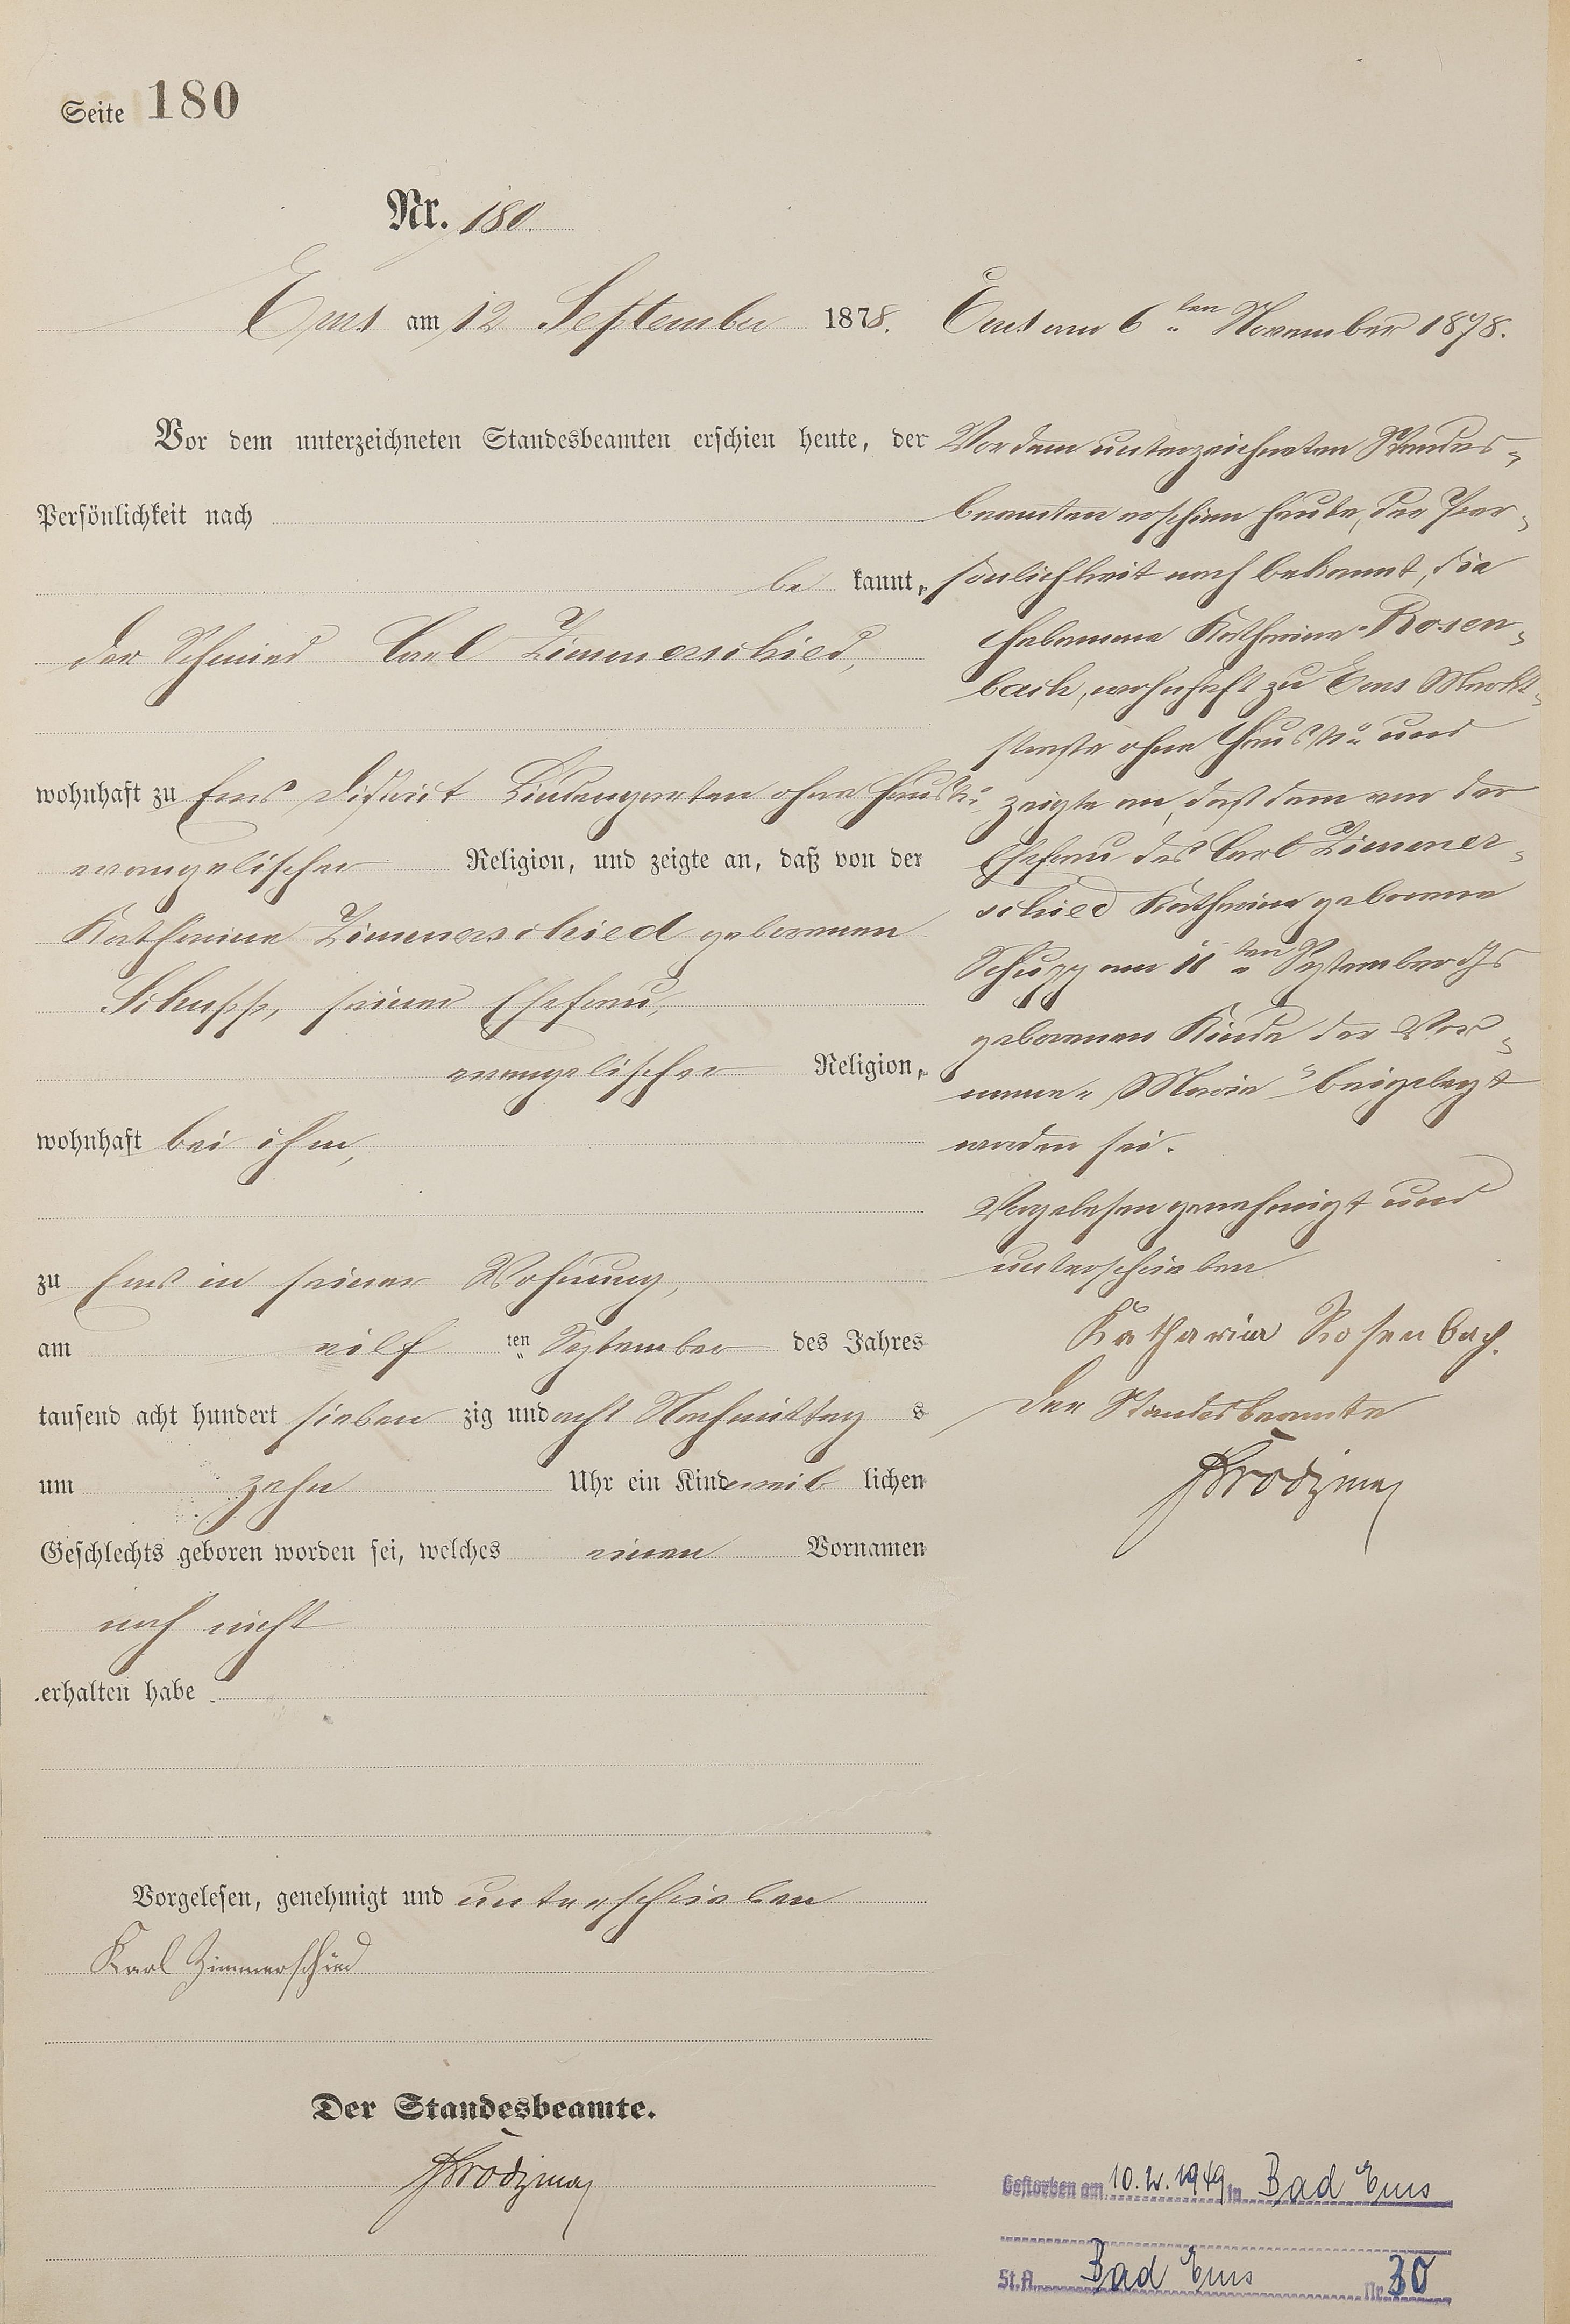 Seite 180
Nr. 180.
Ems am 12 September 1878.
Vor dem unterzeichneten Standesbeamten erschien heute, der
Persönlichkeit nach
be kannt,
der Schmied Carl Zimmerschied,
wohnhaft zu Ems District Lindengarten ohne Haus No
evangelischer Religion, und zeigte an, daß von der
Katharina Zimmerschied geborenen
Schupp, seiner Ehefrau,
evangelischer Religion,
wohnhaft bei ihm,
zu Ems in seiner Wohnung,
am eilf ten September des Jahres
tausend acht hundert sieben zig und acht Nachmittag s
um zehn Uhr ein Kind weib lichen
Geschlechts geboren worden sei, welches einen Vornamen
noch nicht
erhalten habe.
Vorgelesen, genehmigt und unterschrieben
Karl Zimmerschied
Der Standesbeamte.
Ems am 6ten November 1878.
Vor dem unterzeichneten Standes-
beamten erschien heute, der Per-
sönlichkeit nach bekannt, die
Hebamme Katharina Rosen-
bach, wohnhaft zu Ems Markt-
straße ohne Haus No und
zeigte an, daß dem von der
Ehefrau des Carl Zimmer-
schied Katharina geborene
Schupp am 11ten September ds Js
geborenen Kinde der Vor-
name „Marie“ beigelegt
worden sei.
Vorgelesen genehmigt und
unterschrieben
Katharina Rosenbach.
Der Standesbeamte
Gestorben am 10.2.1949 in Bad Ems
St.A. Bad Ems Nr. 30